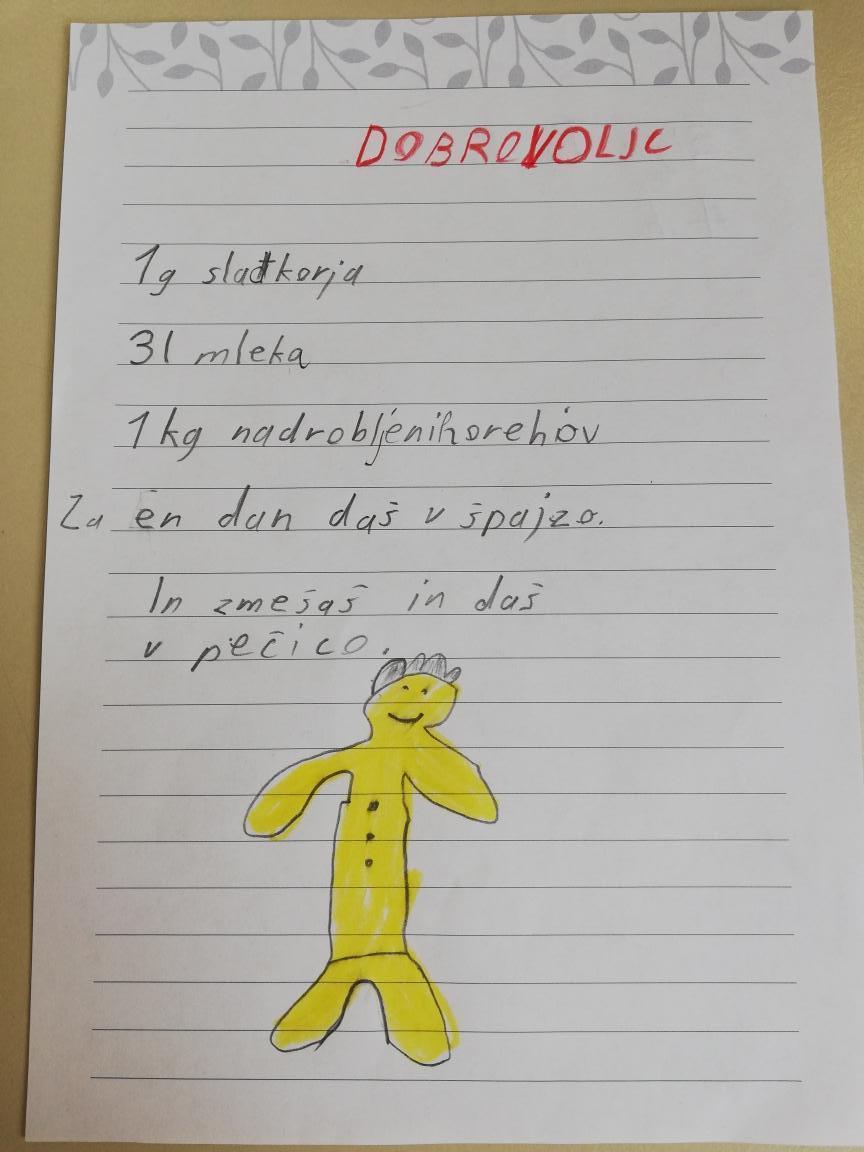 DOBROVOLJC
1g sladkorja
3l mleka
1kg nadrobljenih orehov
Za en dan daš v špajzo.
In zmešaš in daš
v pečico.